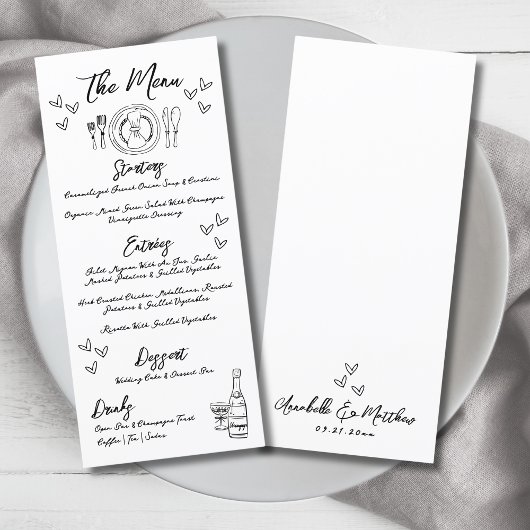 The Menu
Starters
Caramelized French Onion Soup & Crostini
Organic Mixed Green Salad With Champagne
Vinaigrette Dressing
Entrées
Filet Mignon With Au Jus, Garlic
Mashed Potatoes & Grilled Vegetables
Herb Crusted Chicken Medallions, Roasted
Potatoes & Grilled Vegetables
Risotto With Grilled Vegetables
Dessert
Wedding Cake & Dessert Bar
Drinks
Open Bar & Champagne Toast
Coffee | Tea | Sodas
Annabelle & Matthew
09.21.20xx